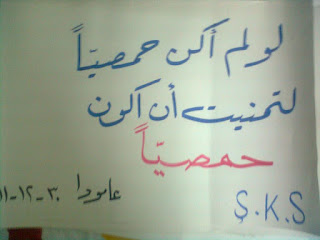 لو لم أكن حمصيّاً
لتمنيت أن أكون
حمصيّاً
عامودا ٣٠-١٢-١١
S.K.S